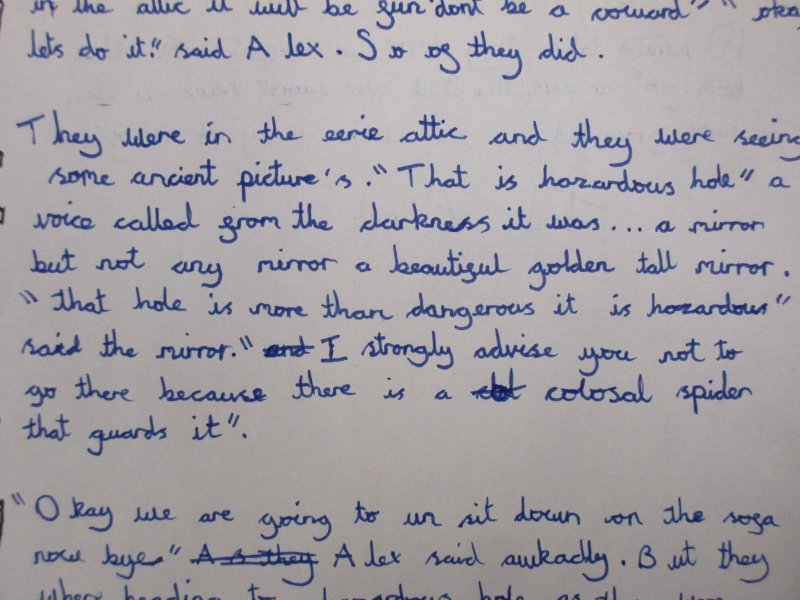 in the attic it will be fun dont be a coward" "okay
lets do it." said Alex. So og they did.
They were in the eerie attic and they were seeing
some ancient picture's. "That is hozardous hole" a
voice called from the darkness it was... a mirror
but not any mirror a beautiful golden tall mirror.
"that hole is more than dangerous it is hozardous"
said the mirror." and I strongly advise you not to
go there because there is a colosal spider
that guards it".
"Okay we are going to un sit down on the sofa
now bye" As they Alex said awkadly. But they
where heading to hole